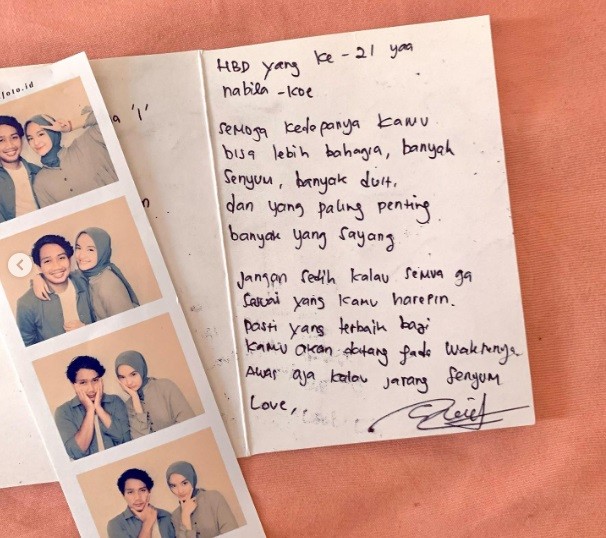 foto.id
a '1'
HBD yang ke-21 yaa
nabila-koe
semoga kedepanya kamu
bisa lebih bahagia, banyak
senyum, banyak duit,
dan yang paling penting
banyak yang sayang
jangan sedih kalau semua ga
sesuai yang kamu harepin.
pasti yang terbaik bagi
kamu akan datang pada waktunya
Awas aja kalau jarang senyum
Love,